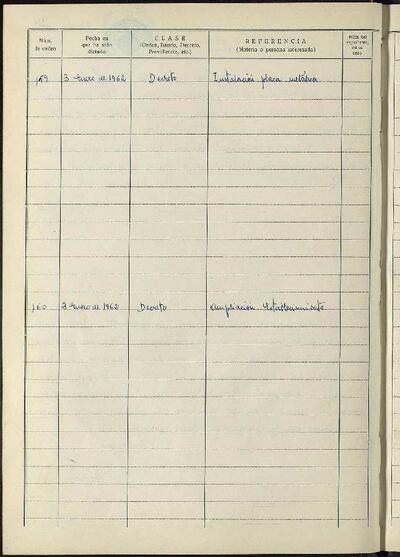 Núm. de orden
Fecha en que ha sido dictado
CLASE (Orden, Bando, Decreto, Providencia, etc.)
REFERENCIA (Materia o persona interesada)
3 Enero de 1962 Decreto Instalación placa metálica
160 3 Enero de 1962 Decreto Ampliación Establecimiento